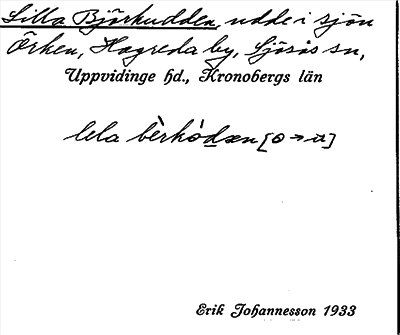 Lilla Björkudden, udde i sjön
Örken, Hagreda by, Sjösås sn,
Uppvidinge hd., Kronobergs län
lela bèrkódæn [o → u]
Erik Johannesson 1933